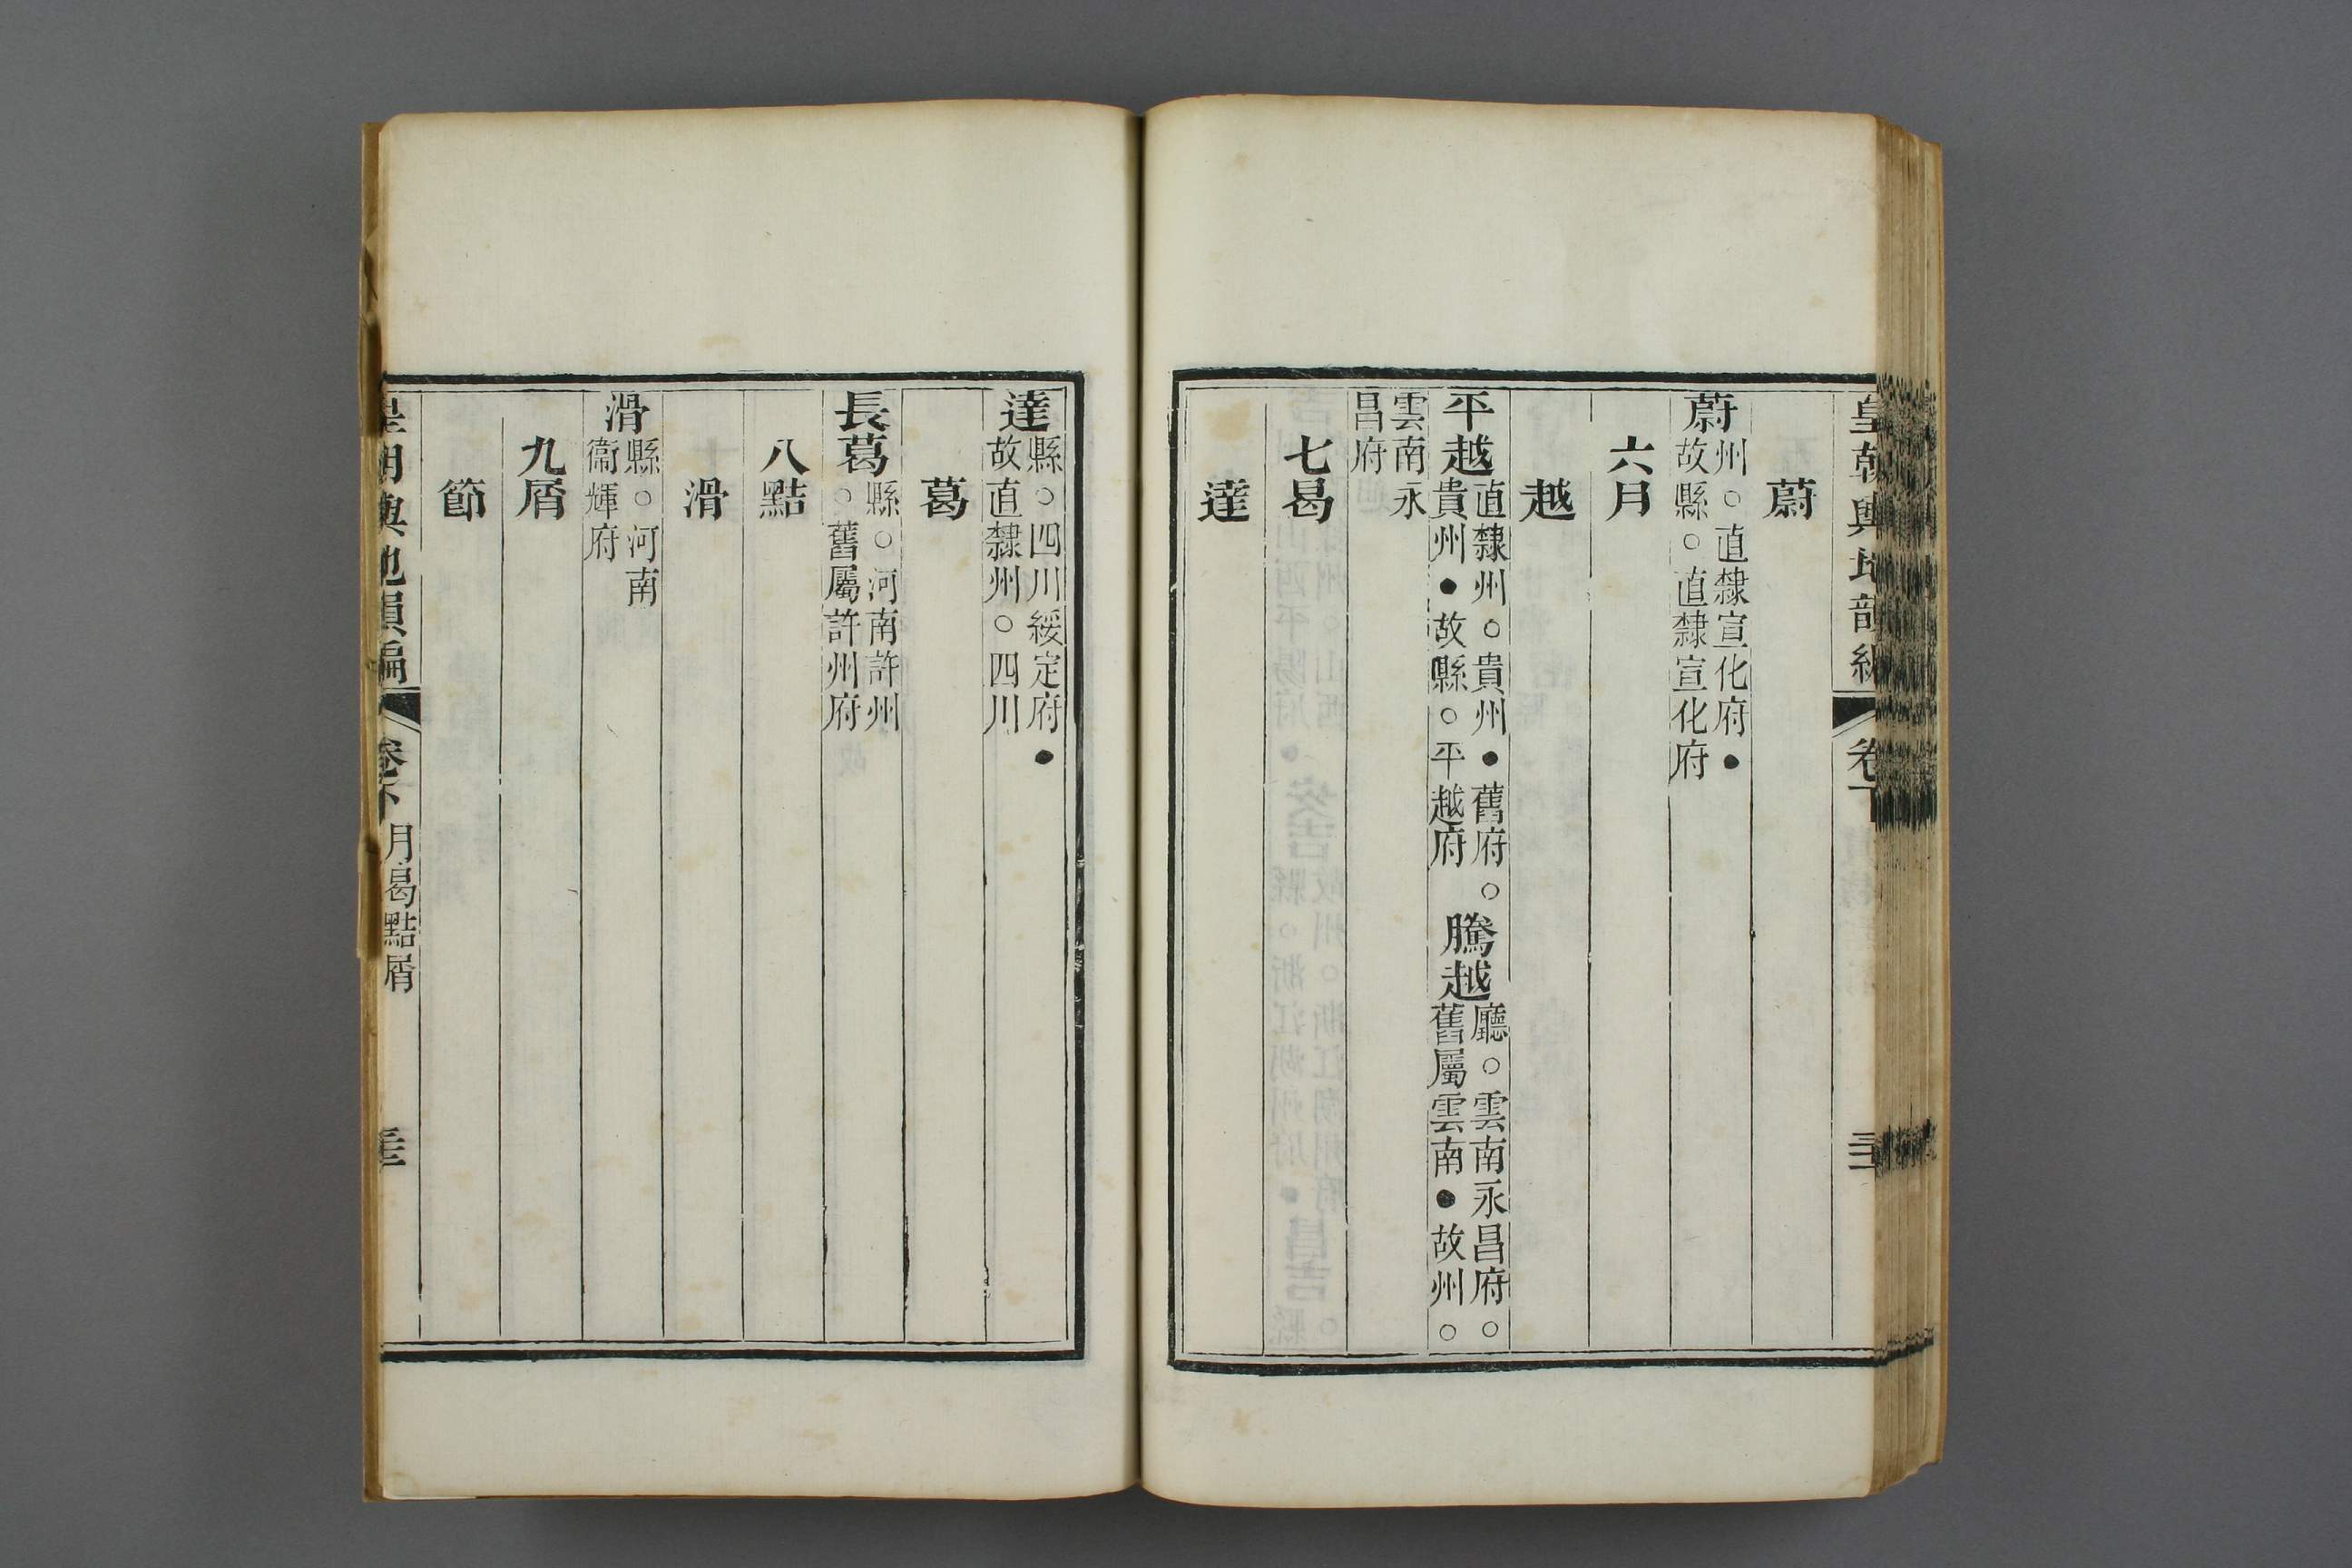 皇朝輿地韻編 卷下
蔚
蔚州○直隸宣化府●故縣○直隸宣化府
六月
越
平越直隸州○貴州●舊府○貴州●故縣○平越府 騰越廳○雲南永昌府○舊屬雲南●故州○
雲南永昌府
七曷
達
達縣○四川綏定府●故直隸州○四川
葛
長葛縣○河南許州○舊屬許州府
八黠
滑
滑縣○河南衞輝府
九屑
節
皇朝輿地韻編 卷下 月曷黠屑